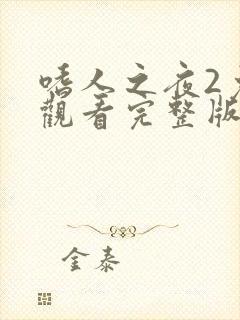 嗜人之夜2
觀看完整版
金泰